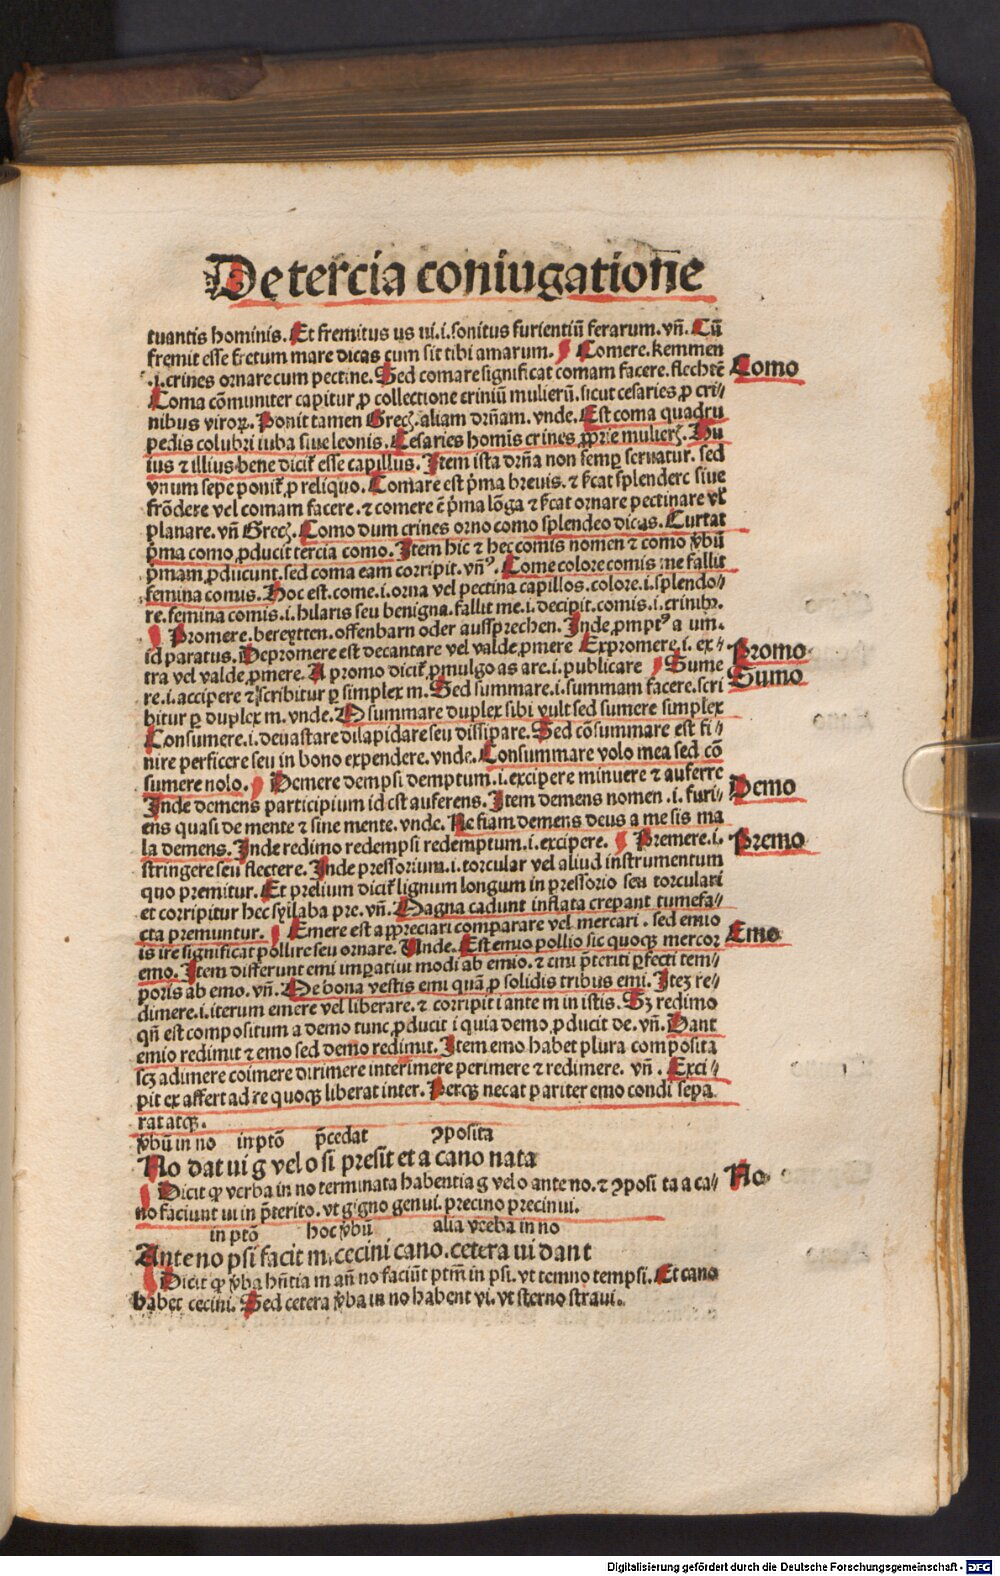 De tercia coniugatione
tuantis hominis. Et fremitus us ui .i. sonitus furientiū ferarum. vn̄. Cū
fremit esse fretum mare dicas cum sit tibi amarum. ¶ Comere. kemmen
Como
.i. crines ornare cum pectine. Sed comare significat comam facere. flechtē
Coma cōmuniter capitur ꝓ collectione criniū mulierū. sicut cesaries ꝓ cri⸗
nibus viroꝝ. Ponit tamen Grecꝫ. aliam drn̄am. vnde. Est coma quadru
pedis colubri iuba siue leonis. Cesaries homis crines ꝓprie mulierꝫ. Hu
ius ⁊ illius bene dicit̉ esse capillus. Item ista drn̄a non semꝑ seruatur. sed
vnum sepe ponit̉ ꝓ reliquo. Comare est p̄ma breuis. ⁊ sc̉at splendere siue
frōdere vel comam facere. ⁊ comere ē p̄ma lōga ⁊ sc̉at ornare pectinare vl̉
planare. vn̄ Grecꝫ. Como dum crines orno como splendeo dicas. Curtat
p̄ma como ꝓducit tercia como. Item hic ⁊ hec comis nomen ⁊ como v̉bū
p̄mam ꝓducunt. sed coma eam corripit. vn̄ꝰ. Come colore comis me fallit
femina comis. Hoc est. come .i. orna vel pectina capillos. colore .i. splendo⸗
re. femina comis .i. hilaris seu benigna. fallit me .i. decipit. comis .i. crinibꝫ.
¶ Promere. bereytten. offenbarn oder aussprechen. Inde ꝓmptꝰ a um.
id paratus. Depromere est decantare vel valde ꝓmere Expromere .i. ex⸗
Promo
tra vel valde ꝓmere. A promo dicit̉ ꝓmulgo as are .i. publicare ¶ Sume
Sumo
re .i. accipere ⁊ scribitur ꝑ simplex m. Sed summare .i. summam facere. scri
bitur ꝑ duplex m. vnde. M summare duplex sibi vult sed sumere simplex
Consumere .i. deuastare dilapidare seu dissipare. Sed cōsummare est fi⸗
nire perficere seu in bono expendere. vnde. Consummare volo mea sed cō
sumere nolo. ¶ Demere dempsi demptum .i. excipere minuere ⁊ auferre
Demo
Inde demens participium id est auferens. Item demens nomen .i. furi⸗
ens quasi de mente ⁊ sine mente. vnde. Ne fiam demens deus a me sis ma
la demens. Inde redimo redempsi redemptum .i. excipere. ¶ Premere .i.
Premo
stringere seu flectere. Inde pressorium .i. torcular vel aliud instrumentum
quo premitur. Et prelium dicit̉ lignum longum in pressorio seu torculari
et corripitur hec syllaba pre. vn̄. Magna cadunt inflata crepant tumefa⸗
cta premuntur. ¶ Emere est appreciari comparare vel mercari. sed emio
Emo
is ire significat pollire seu ornare. Unde. Est emio pollio sic quoqꝫ mercor
emo. Item differunt emi imꝑatiui modi ab emio. ⁊ emi p̄teriti ꝑfecti tem⸗
poris ab emo. vn̄. Me bona vestis emi quā ꝓ solidis tribus emi. Itcꝫ re⸗
dimere .i. iterum emere vel liberare. ⁊ corripit i ante m in istis. Sꝫ redimo
qn̄ est compositum a demo tunc ꝓducit i quia demo ꝓducit de. vn̄. Dant
emio redimit ⁊ emo sed demo redimit. Item emo habet plura composita
scꝫ adimere coimere dirimere interimere perimere ⁊ redimere. vn̄. Exci⸗
pit ex affert ad re quoqꝫ liberat inter. Perqꝫ necat pariter emo condi sepa
rat atqꝫ.
v̉bū in no in ptō p̄cedat ꝯposita
No dat ui g vel o si presit et a cano nata
¶ Dicit ꝙ verba in no terminata habentia g vel o ante no. ⁊ ꝯposita a ca⸗
No
no faciunt ui in p̄terito. vt gigno genui. precino precinui.
in ptō hoc v̉bū alia verba in no
Ante no psi facit m. cecini cano. cetera ui dant
¶ Dicit ꝙ v̉ba hn̄tia m an̄ no faciūt ptm̄ in psi. vt temno tempsi. Et cano
habet cecini. Sed cetera v̉ba in no habent vi. vt sterno straui.
Digitalisierung gefördert durch die Deutsche Forschungsgemeinschaft - DFG